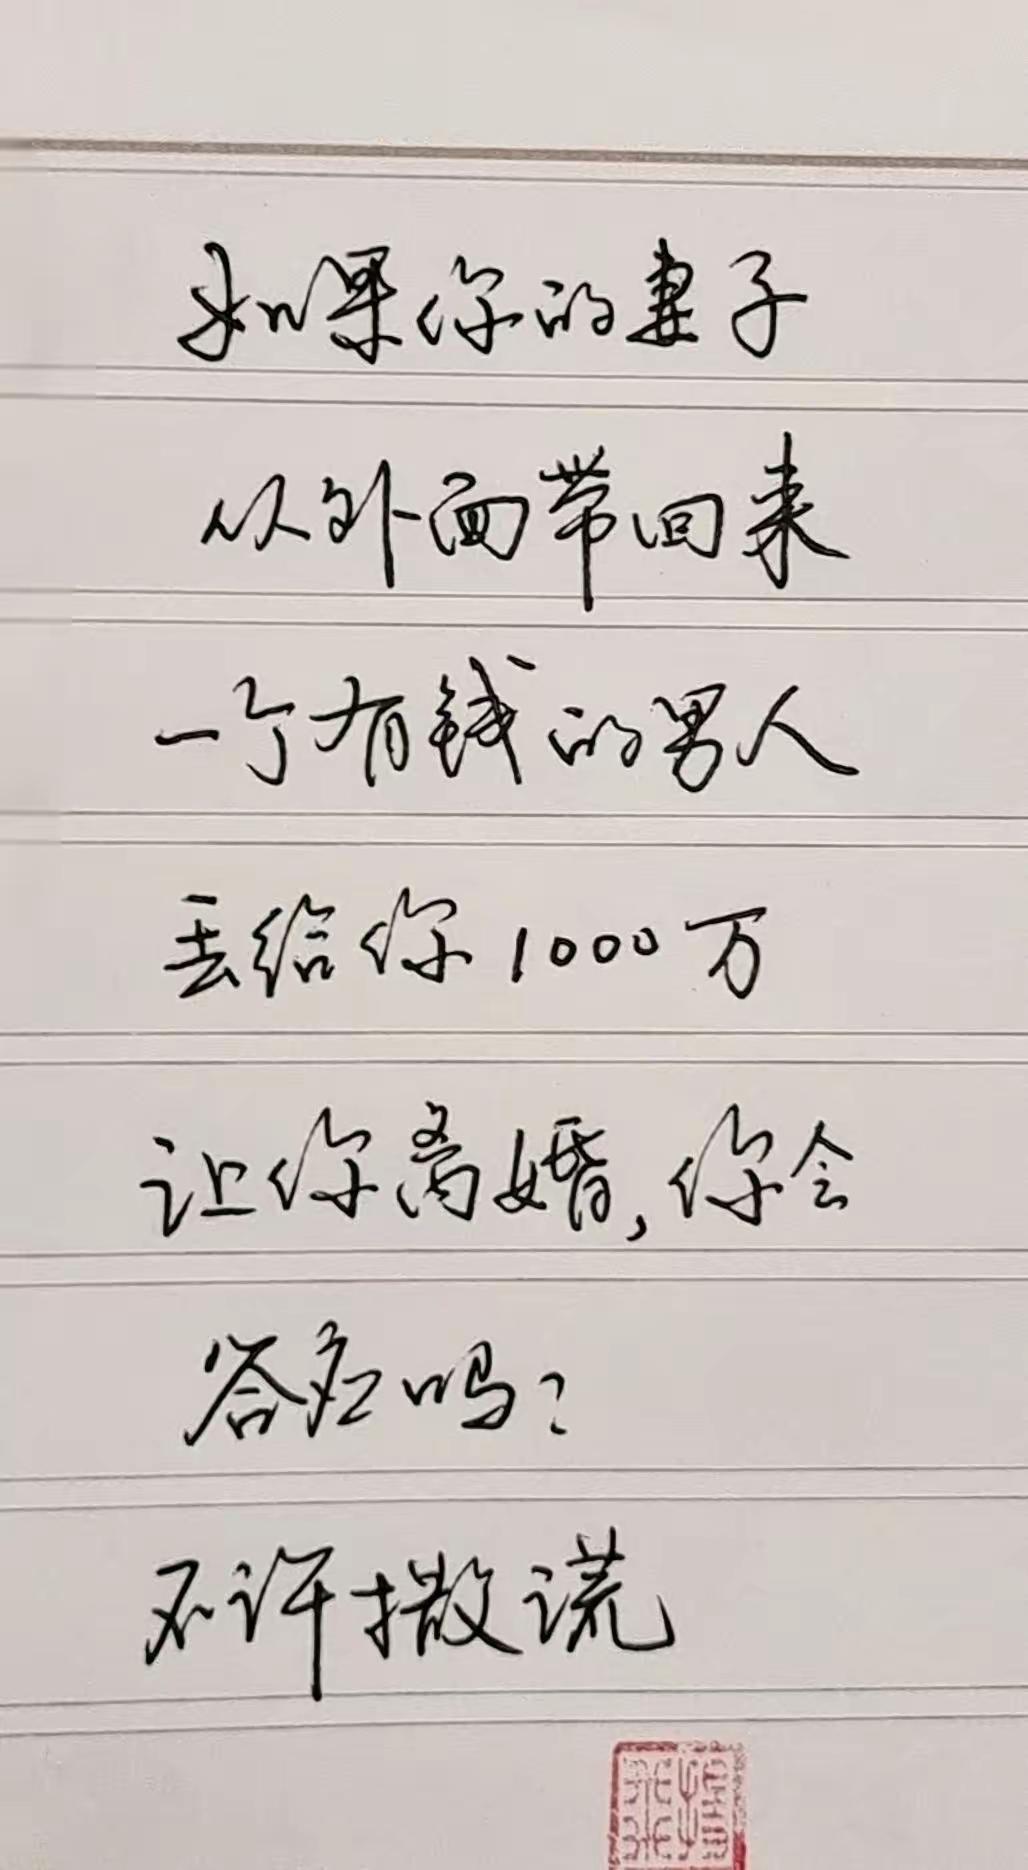 如果你的妻子
从外面带回来
一个有钱的男人
丢给你1000万
让你离婚,你会
答应吗?
不许撒谎